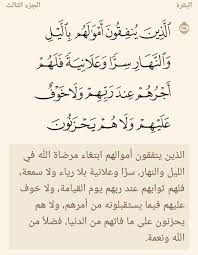 البقرة
الجزء الثالث
الَّذِينَ يُنفِقُونَ أَمْوَالَهُم بِاللَّيْلِ
وَالنَّهَارِ سِرًّا وَعَلَانِيَةً فَلَهُمْ
أَجْرُهُمْ عِندَ رَبِّهِمْ وَلَا خَوْفٌ
عَلَيْهِمْ وَلَا هُمْ يَحْزَنُونَ
الذين ينفقون أموالهم ابتغاء مرضاة الله في
الليل والنهار، سرًّا وعلانية بلا رياء ولا سمعة،
فلهم ثوابهم عند ربهم يوم القيامة، ولا خوف
عليهم فيما يستقبلونه من أمرهم، ولا هم
يحزنون على ما فاتهم من الدنيا، فضلًا من الله
ونعمة.